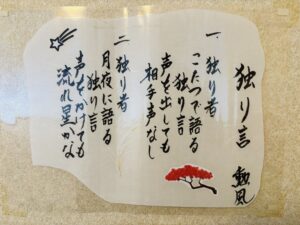 独り言 勲風
一、独り者
こたつで語る
独り言
声を出しても
相手声なし
二 独り者
月夜に語る
独り言
声をかけても
流れ星かな